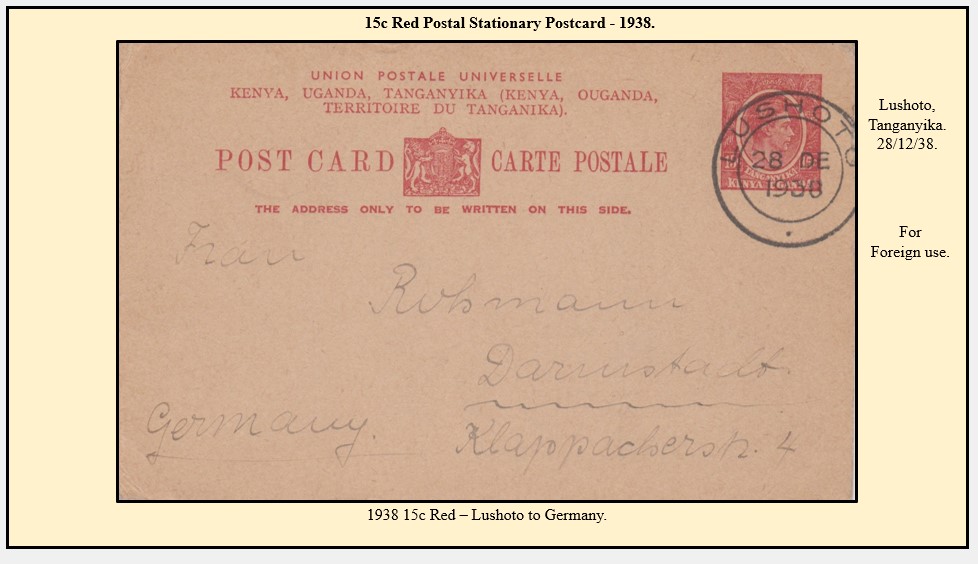 15c Red Postal Stationary Postcard - 1938.
UNION POSTALE UNIVERSELLE
KENYA, UGANDA, TANGANYIKA (KENYA, OUGANDA,
TERRITOIRE DU TANGANIKA).
POST CARD CARTE POSTALE
THE ADDRESS ONLY TO BE WRITTEN ON THIS SIDE.
LUSHOTO
28 DE
1938
TANGANYIKA
KENYA
Frau
Rohmann
Darmstadt.
Klappacherstr. 4
Germany.
Lushoto,
Tanganyika.
28/12/38.
For
Foreign use.
1938 15c Red – Lushoto to Germany.